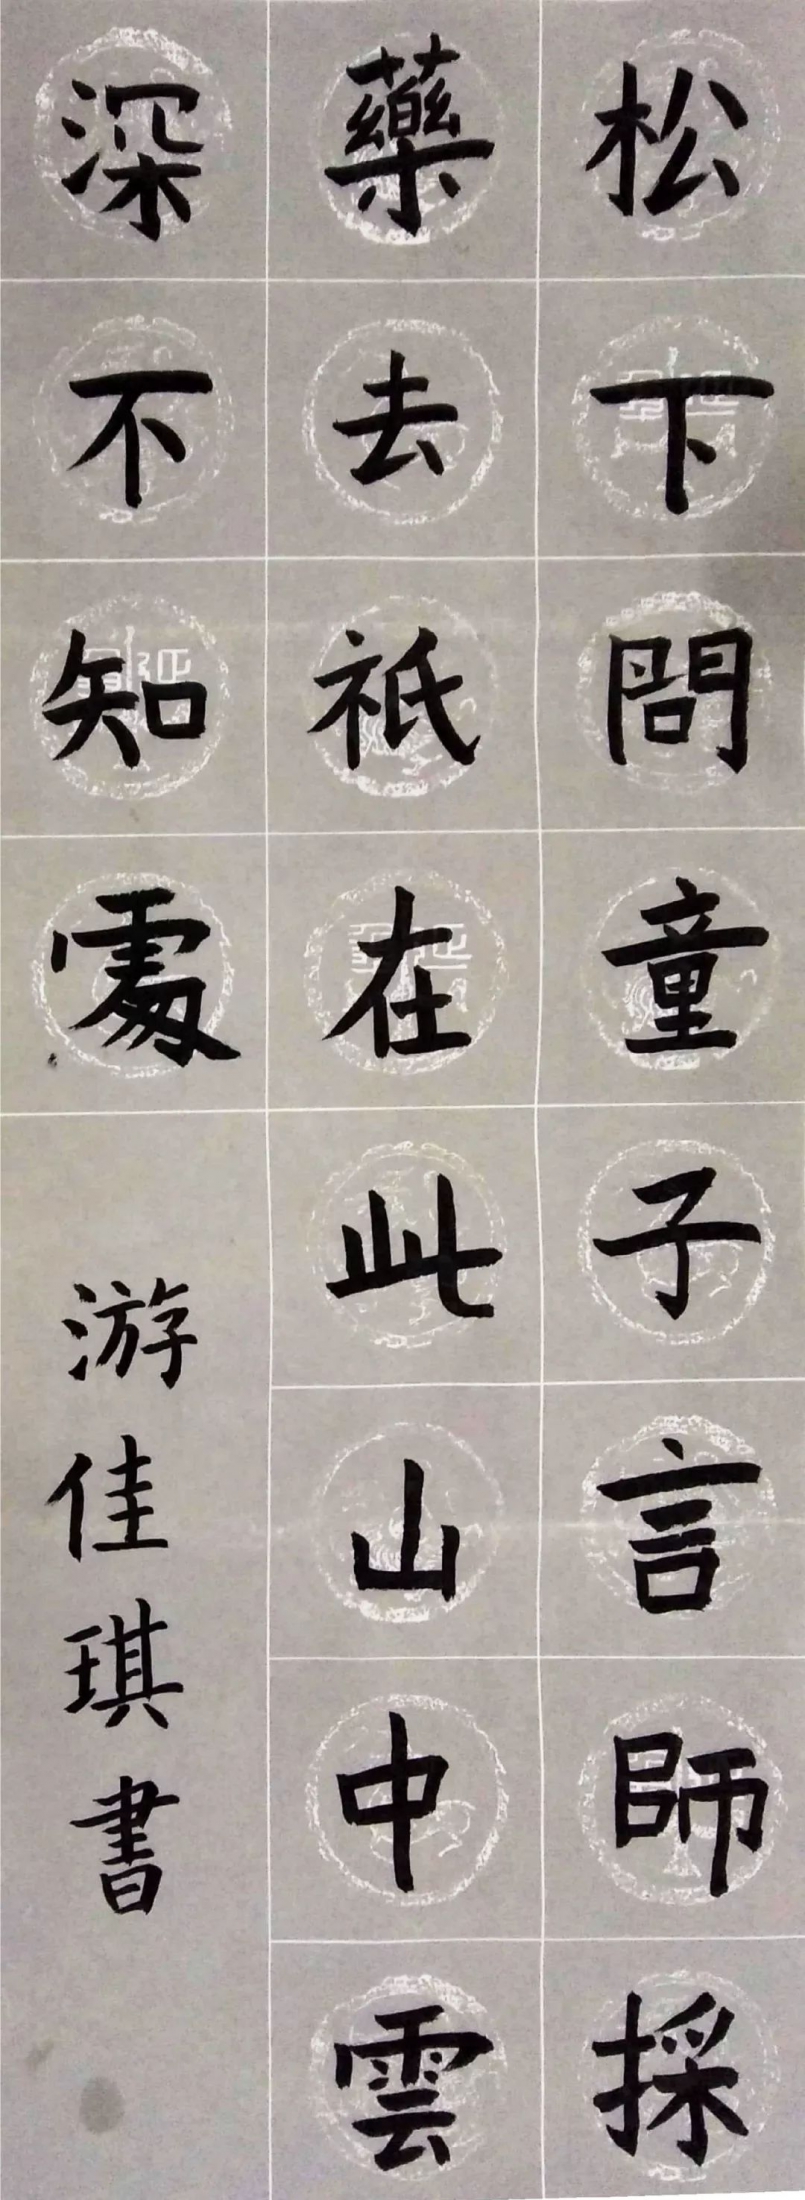 松下問童子言師採
藥去祇在此山中雲
深不知處
游佳琪書